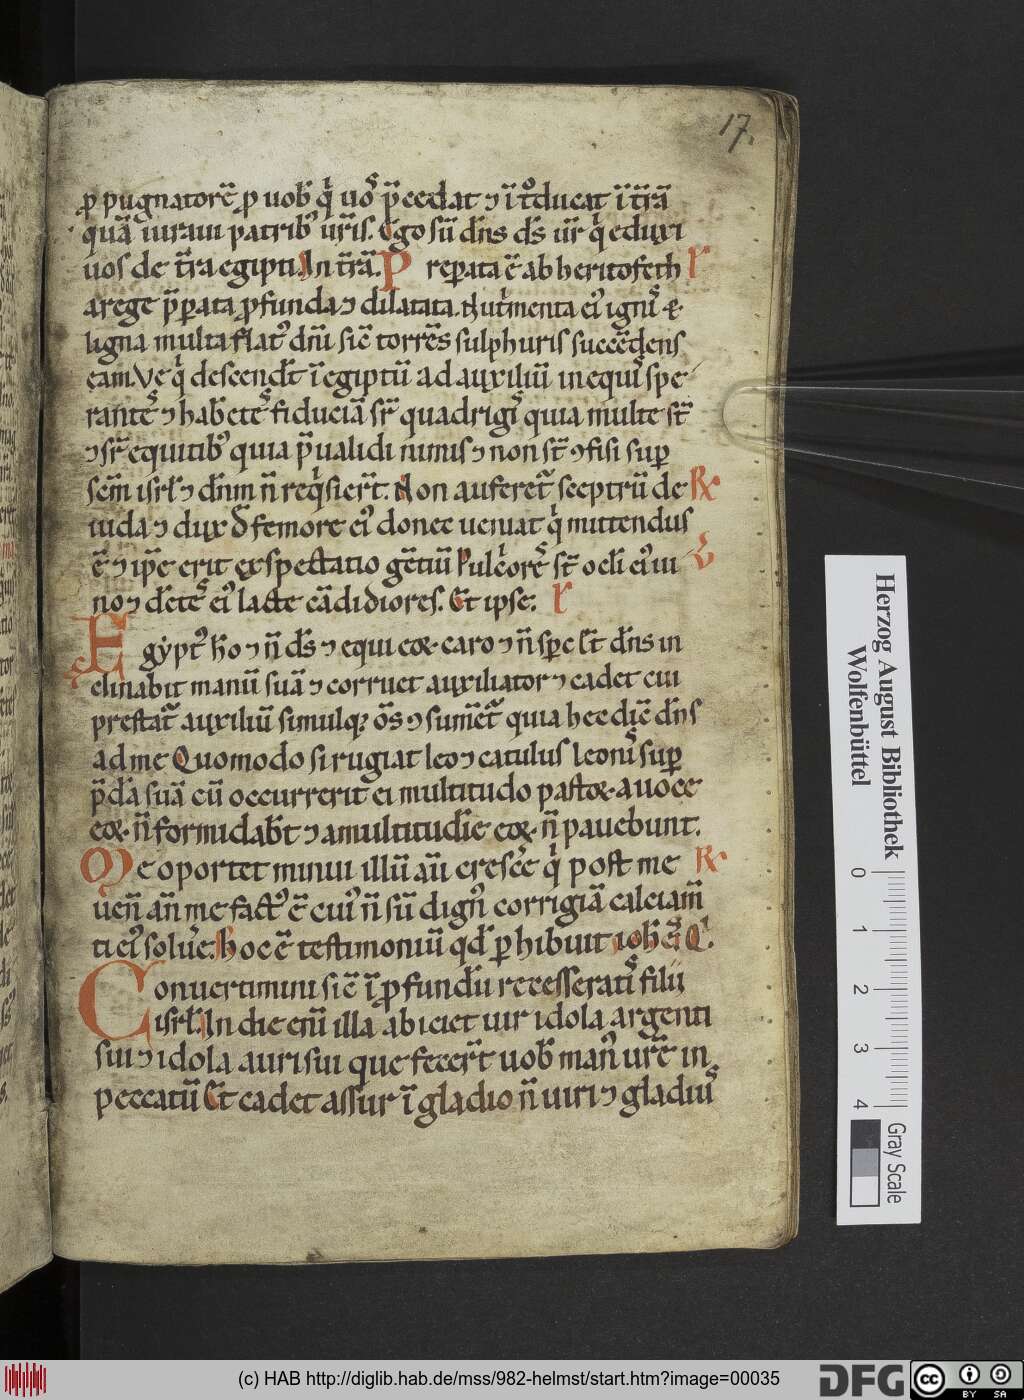 17.
ꝓpugnatorē ꝓ uob̄ qͥ uoˢ p̄cedat ⁊ ī t̊ducat ī t̄rā
quā iuraui patribꝰ ur̄is. Ego sū dn̄s ds̄ ur̄ qͥ eduxi
uos de t̄ra egipti. In t̄rā. Preꝑata ē ab heri tofeth ꝶ
a rege p̄ꝑata ꝓfunda ⁊ dilatata. Nut̄menta eiꝰ ignīˢ &
ligna multa flatꝰ dn̄i sic̄ torrēs sulphuris succēdens
eam. Ve qͥ descend̄t ī egiptū ad auxiliū in equīˢ spe
rantēˢ ⁊ hab̄etēˢ fiduciā sr̄ quadrigīˢ quia multe st̄
⁊ sr̄ equitibꝰ quia p̄ualidi nimis ⁊ non st̄ ꝯfisi suꝑ
sc̄m isrl̄ ⁊ dn̄m n̄ reqͥsier̄t. Non aufereṫ sceptrū de ꝶ
iuda ⁊ dux d̄ femore eiꝰ donec ueniat qͥ mittendus
ē ⁊ ip̄e erit exspectatio gētiū Pulcͥorēˢ st̄ ocl̄i eiꝰ ui
no ⁊ d̄etēˢ eiꝰ lacte cādidiores. Et ipse.
Egyptꝰ ho ⁊ n̄ ds̄ ⁊ equi eoꝝ caro ⁊ n̄ sp̄c ⁊ dn̄s in
clinabit manū suā ⁊ corruet auxiliator ⁊ cadet cui
prestat̄ auxiliū simulqꝫ om̄s ꝯsumēt̄ quia hec dic̄ dn̄s
ad me Quomodo si rugiat leo ⁊ catulus leonīˢ suꝑ
p̄dā suā cū occurrerit ei multitudo pastoꝝ a uoce
eoꝝ n̄ formidab̄t ⁊ a multitudīe eoꝝ n̄ pauebunt.
Me oportet minui illū aū cresce qͥ post me ꝶ
uen̄ an̄ me factꝰ ē cuiꝰ n̄ sū dignꝰ corrigiā calciam̄
ti eiꝰ soluꝰe. Hoc ē testimoniū qd̄ ꝑhibuit ioh̄
Conuertimini sic̄ ī ꝓfundū recesseratīˢ filii
isrl̄. In die eni illa abiciet uir idola argenti
sui ⁊ idola auri sui que fecer̄t uob̄ manꝰ ure in
peccatū Et cadet assur ī gladio n̄ uiri ⁊ gladiūˢ
Herzog August Bibliothek
Wolfenbüttel
0 1 2 3 4
Gray Scale
(c) HAB http://diglib.hab.de/mss/982-helmst/start.htm?image=00035
DFG
cc BY SA